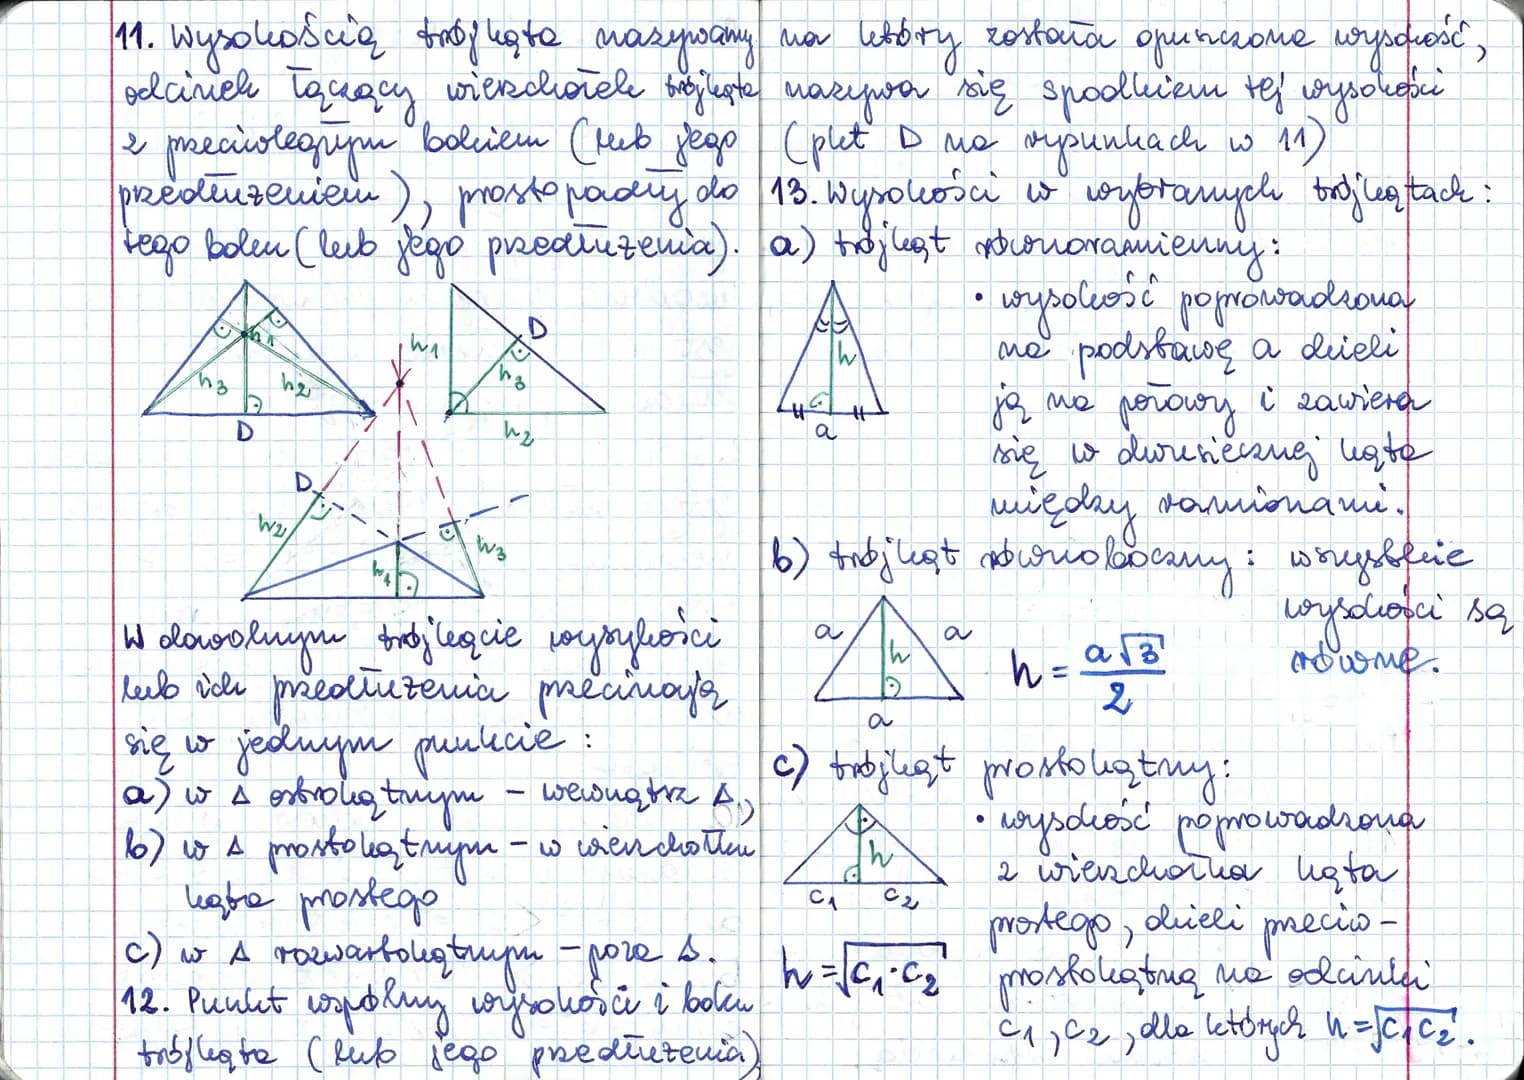 11. Wysokością trójkąta nazywamy
odcinek łączący wierzchołek trójkąta
z przeciwległym bokiem (lub jego
przedłużeniem), prostopadły do
tego boku (lub jego przedłużenia).
h1
h3
h2
D
h1
D
h3
h2
D
h2
h3
h1
W dowolnym trójkącie wysykości
lub ich przedłużenia przecinają
się w jednym punkcie:
a) w Δ ostrokątnym – wewnątrz Δ,
b) w Δ prostokątnym – w wierzchołku
kąta prostego
c) w Δ rozwartokątnym – poza Δ.
12. Punkt wspólny wysokości i boku
trójkąta (lub jego przedłużenia),
na który została opuszczona wysokość,
nazywa się spodkiem tej wysokości
(pkt D na rysunkach w 11)
13. Wysokości w wybranych trójkątach:
a) trójkąt równoramienny:
• wysokość poprowadzona
na podstawę a dzieli
ją na połowy i zawiera
się w dwusiecznej kąta
między ramionami.
h
a
b) trójkąt równoboczny: wszystkie
wysokości są
równe.
a a
h
a
h = a√3/2
c) trójkąt prostokątny:
• wysokość poprowadzona
z wierzchołka kąta
prostego, dzieli przeciw-
prostokątną na odcinki
c1, c2, dla których h=√c1c2.
h
c1 c2
h = √c1·c2